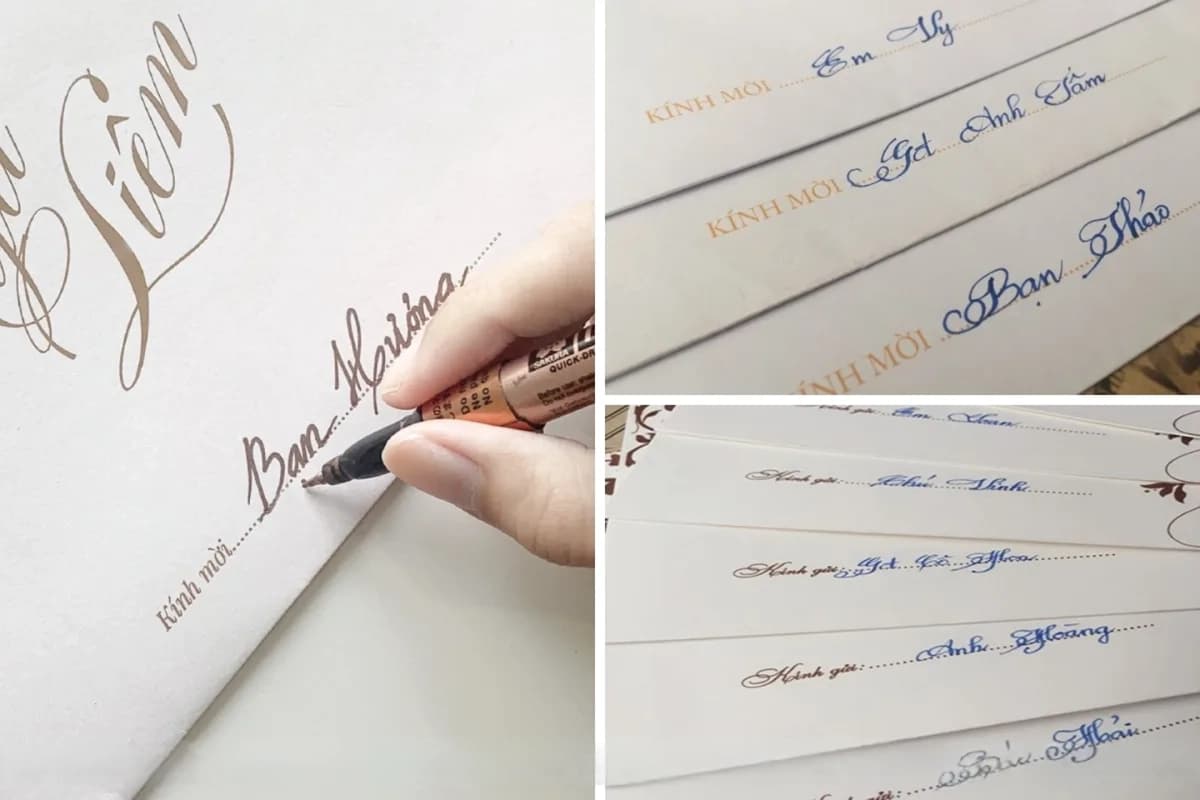 Liêm
Kính mời Bạn Hương
SAKURA
QUICK-DR
KÍNH MỜI Em Vy
KÍNH MỜI Gđ Anh Tâm
KÍNH MỜI Bạn Thảo
Em Loan
Kính gửi: Chú Vinh
Kính gửi: Gđ Cô Hoa
Kính gửi: Anh Hoàng
Kính gửi: Bác Hải